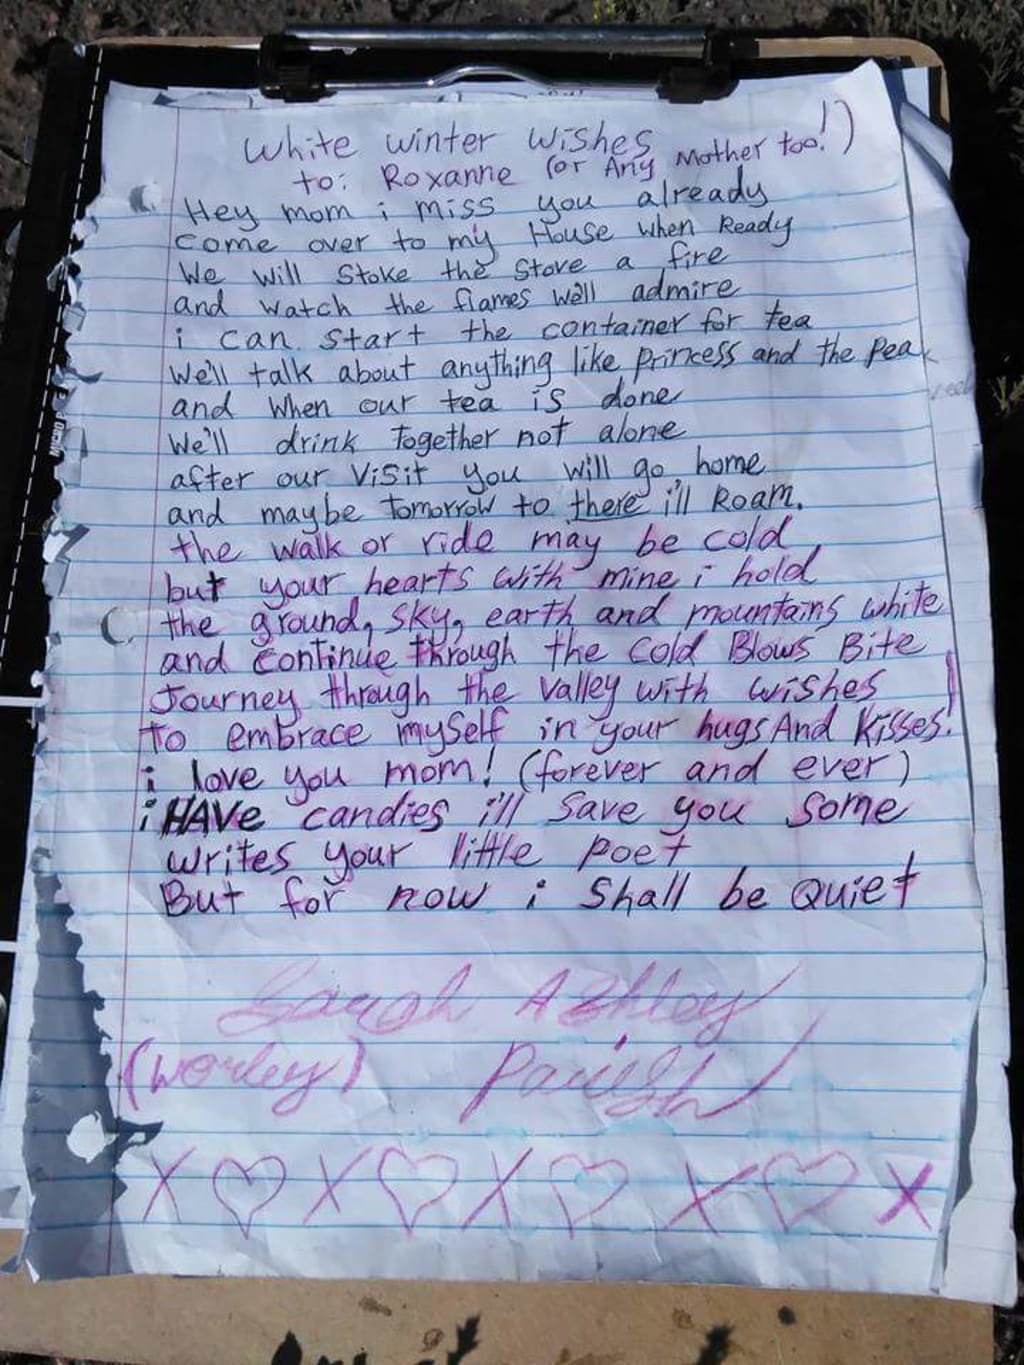 White Winter Wishes
to: Roxanne (or Any Mother too!)
Hey mom i miss you already
come over to my House when Ready
We will stoke the stove a fire
and watch the flames we'll admire
i can start the container for tea
we'll talk about anything like princess and the pea
and when our tea is done
we'll drink together not alone
after our visit you will go home
and maybe tomorrow to there i'll Roam.
the walk or ride may be cold
but your hearts with mine i hold
the ground, sky, earth and mountains white
and continue through the cold Blows Bite
Journey through the valley with wishes
To embrace myself in your hugs And Kisses!
i love you mom! (forever and ever)
i HAVe candies i'll save you some
writes your little poet
But for now i shall be Quiet
Sarah Ashley
(Worley) Parish
X ♡ X ♡ X ♡ X ♡ X